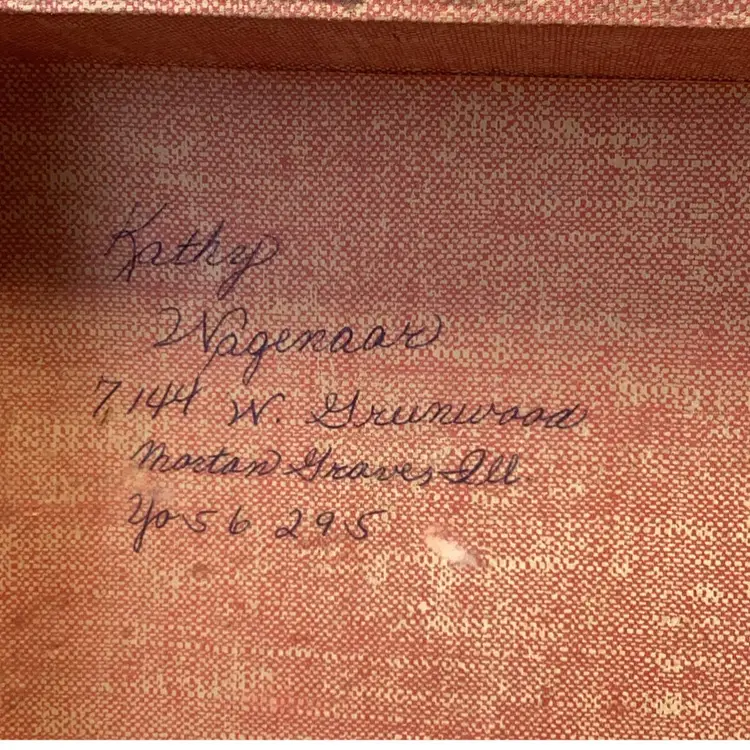 Kathy
Wagenaar
7144 W. Greenwood
Morton Grove, Ill
Yo 5 6 295